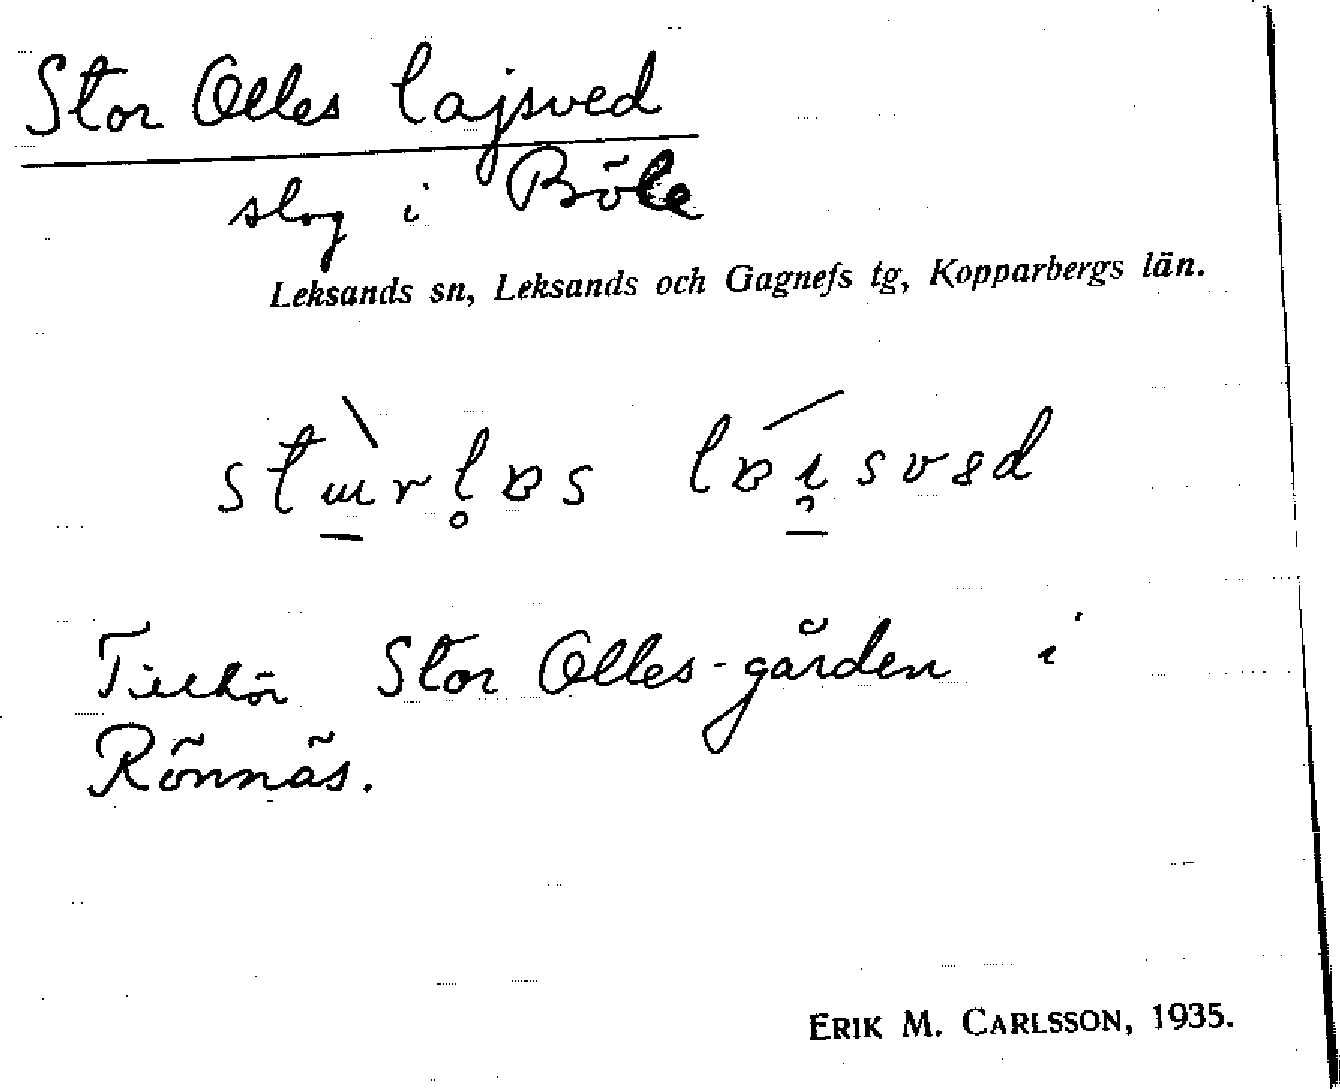 Stor Olles lajsved
slog i Böle
Leksands sn, Leksands och Gagnefs tg, Kopparbergs län.
Tillhör Stor Olles-gården i
Rönnäs.
ERIK M. CARLSSON, 1935.